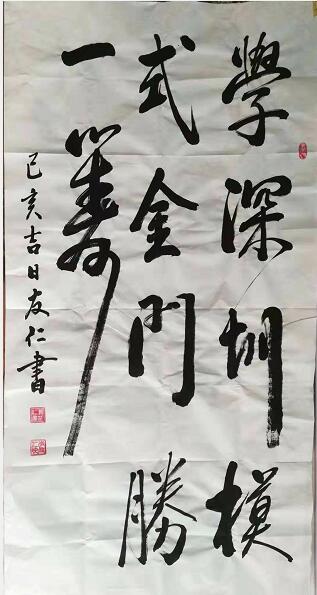 學深圳模
式金門勝
一籌
己亥吉日友仁書